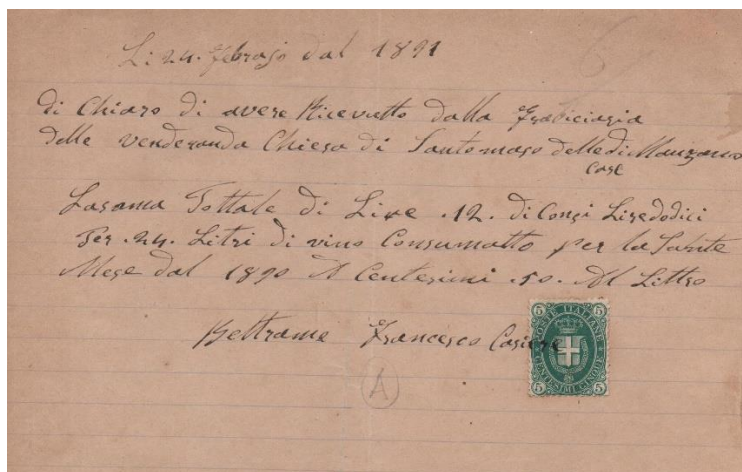 Li 24. febrajo dal 1891
6
di Chiaro di avere Ricevutto dalla Frabiciaria
delle venderanda Chiesa di Santomaso delle di Manzano
Case
Lasoma Tottale di Lire .12. di Congi Liredodici
Per .24. Litri di vino Consumatto per la Sante
Mese dal 1890 A Centesimi .50. Al Littro
Beltrame Francesco
POSTE ITALIANE
CENTESIMI CINQUE
5 5
5 5
A